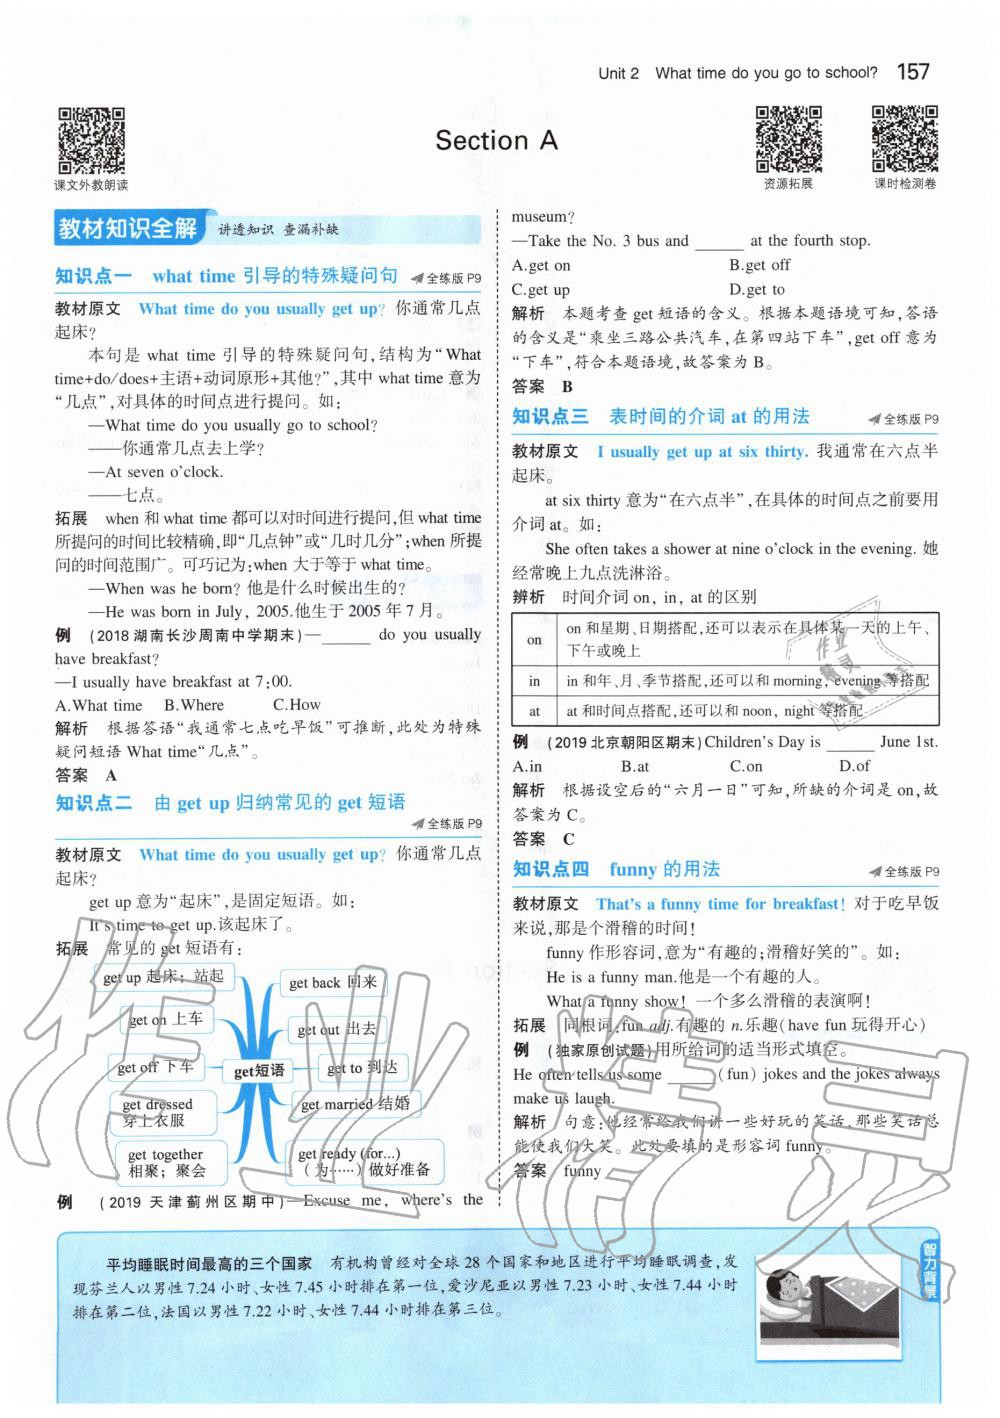 Unit 2 What time do you go to school? 157
Section A
课文外教朗读
资源拓展
课时检测卷
教材知识全解 讲透知识 查漏补缺
知识点一 what time 引导的特殊疑问句 全练版 P9
教材原文 What time do you usually get up? 你通常几点
起床?
本句是 what time 引导的特殊疑问句,结构为“What
time+do/does+主语+动词原形+其他?”,其中 what time 意为
“几点”,对具体的时间点进行提问。如:
—What time do you usually go to school?
——你通常几点去上学?
—At seven o'clock.
——七点。
拓展 when 和 what time 都可以对时间进行提问,但 what time
所提问的时间比较精确,即“几点钟”或“几时几分”;when 所提
问的时间范围广。可巧记为:when 大于等于 what time。
—When was he born? 他是什么时候出生的?
—He was born in July, 2005.他生于 2005 年 7 月。
例 (2018 湖南长沙周南中学期末)—______ do you usually
have breakfast?
—I usually have breakfast at 7:00.
A.What time B.Where C.How
解析 根据答语“我通常七点吃早饭”可推断,此处为特殊
疑问短语 What time“几点”。
答案 A
知识点二 由 get up 归纳常见的 get 短语
全练版 P9
教材原文 What time do you usually get up? 你通常几点
起床?
get up 意为“起床”,是固定短语。如:
It's time to get up.该起床了。
拓展 常见的 get 短语有:
get up 起床；站起
get back 回来
get on 上车
get out 出去
get off 下车
get短语
get to 到达
get dressed
穿上衣服
get married 结婚
get together
相聚；聚会
get ready (for...)
(为……)做好准备
例 (2019 天津蓟州区期中)—Excuse me, where's the
museum?
—Take the No. 3 bus and ______ at the fourth stop.
A.get on B.get off
C.get up D.get to
解析 本题考查 get 短语的含义。根据本题语境可知,答语
的含义是“乘坐三路公共汽车,在第四站下车”,get off 意为
“下车”,符合本题语境,故答案为 B。
答案 B
知识点三 表时间的介词 at 的用法 全练版 P9
教材原文 I usually get up at six thirty. 我通常在六点半
起床。
at six thirty 意为“在六点半”,在具体的时间点之前要用
介词 at。如:
She often takes a shower at nine o'clock in the evening. 她
经常晚上九点洗淋浴。
辨析 时间介词 on, in, at 的区别
on on 和星期、日期搭配,还可以表示在具体某一天的上午、
下午或晚上
in in 和年、月、季节搭配,还可以和 morning, evening 等搭配
at at 和时间点搭配,还可以和 noon, night 等搭配
例 (2019 北京朝阳区期末)Children's Day is ______ June 1st.
A.in B.at C.on D.of
解析 根据设空后的“六月一日”可知,所缺的介词是 on,故
答案为 C。
答案 C
知识点四 funny 的用法 全练版 P9
教材原文 That's a funny time for breakfast! 对于吃早饭
来说,那是个滑稽的时间!
funny 作形容词,意为“有趣的;滑稽好笑的”。如:
He is a funny man.他是一个有趣的人。
What a funny show! 一个多么滑稽的表演啊!
拓展 同根词:fun adj.有趣的 n.乐趣(have fun玩得开心)
例 (独家原创试题)用所给词的适当形式填空。
He often tells us some ______ (fun) jokes and the jokes always
make us laugh.
解析 句意:他经常给我们讲一些好玩的笑话,那些笑话总
能使我们大笑。此处要填的是形容词 funny。
答案 funny
平均睡眠时间最高的三个国家 有机构曾经对全球 28 个国家和地区进行平均睡眠调查,发
现芬兰人以男性 7.24 小时、女性 7.45 小时排在第一位,爱沙尼亚以男性 7.23 小时、女性 7.44 小时
排在第二位,法国以男性 7.22 小时、女性 7.44 小时排在第三位。
智力背景
作业精灵